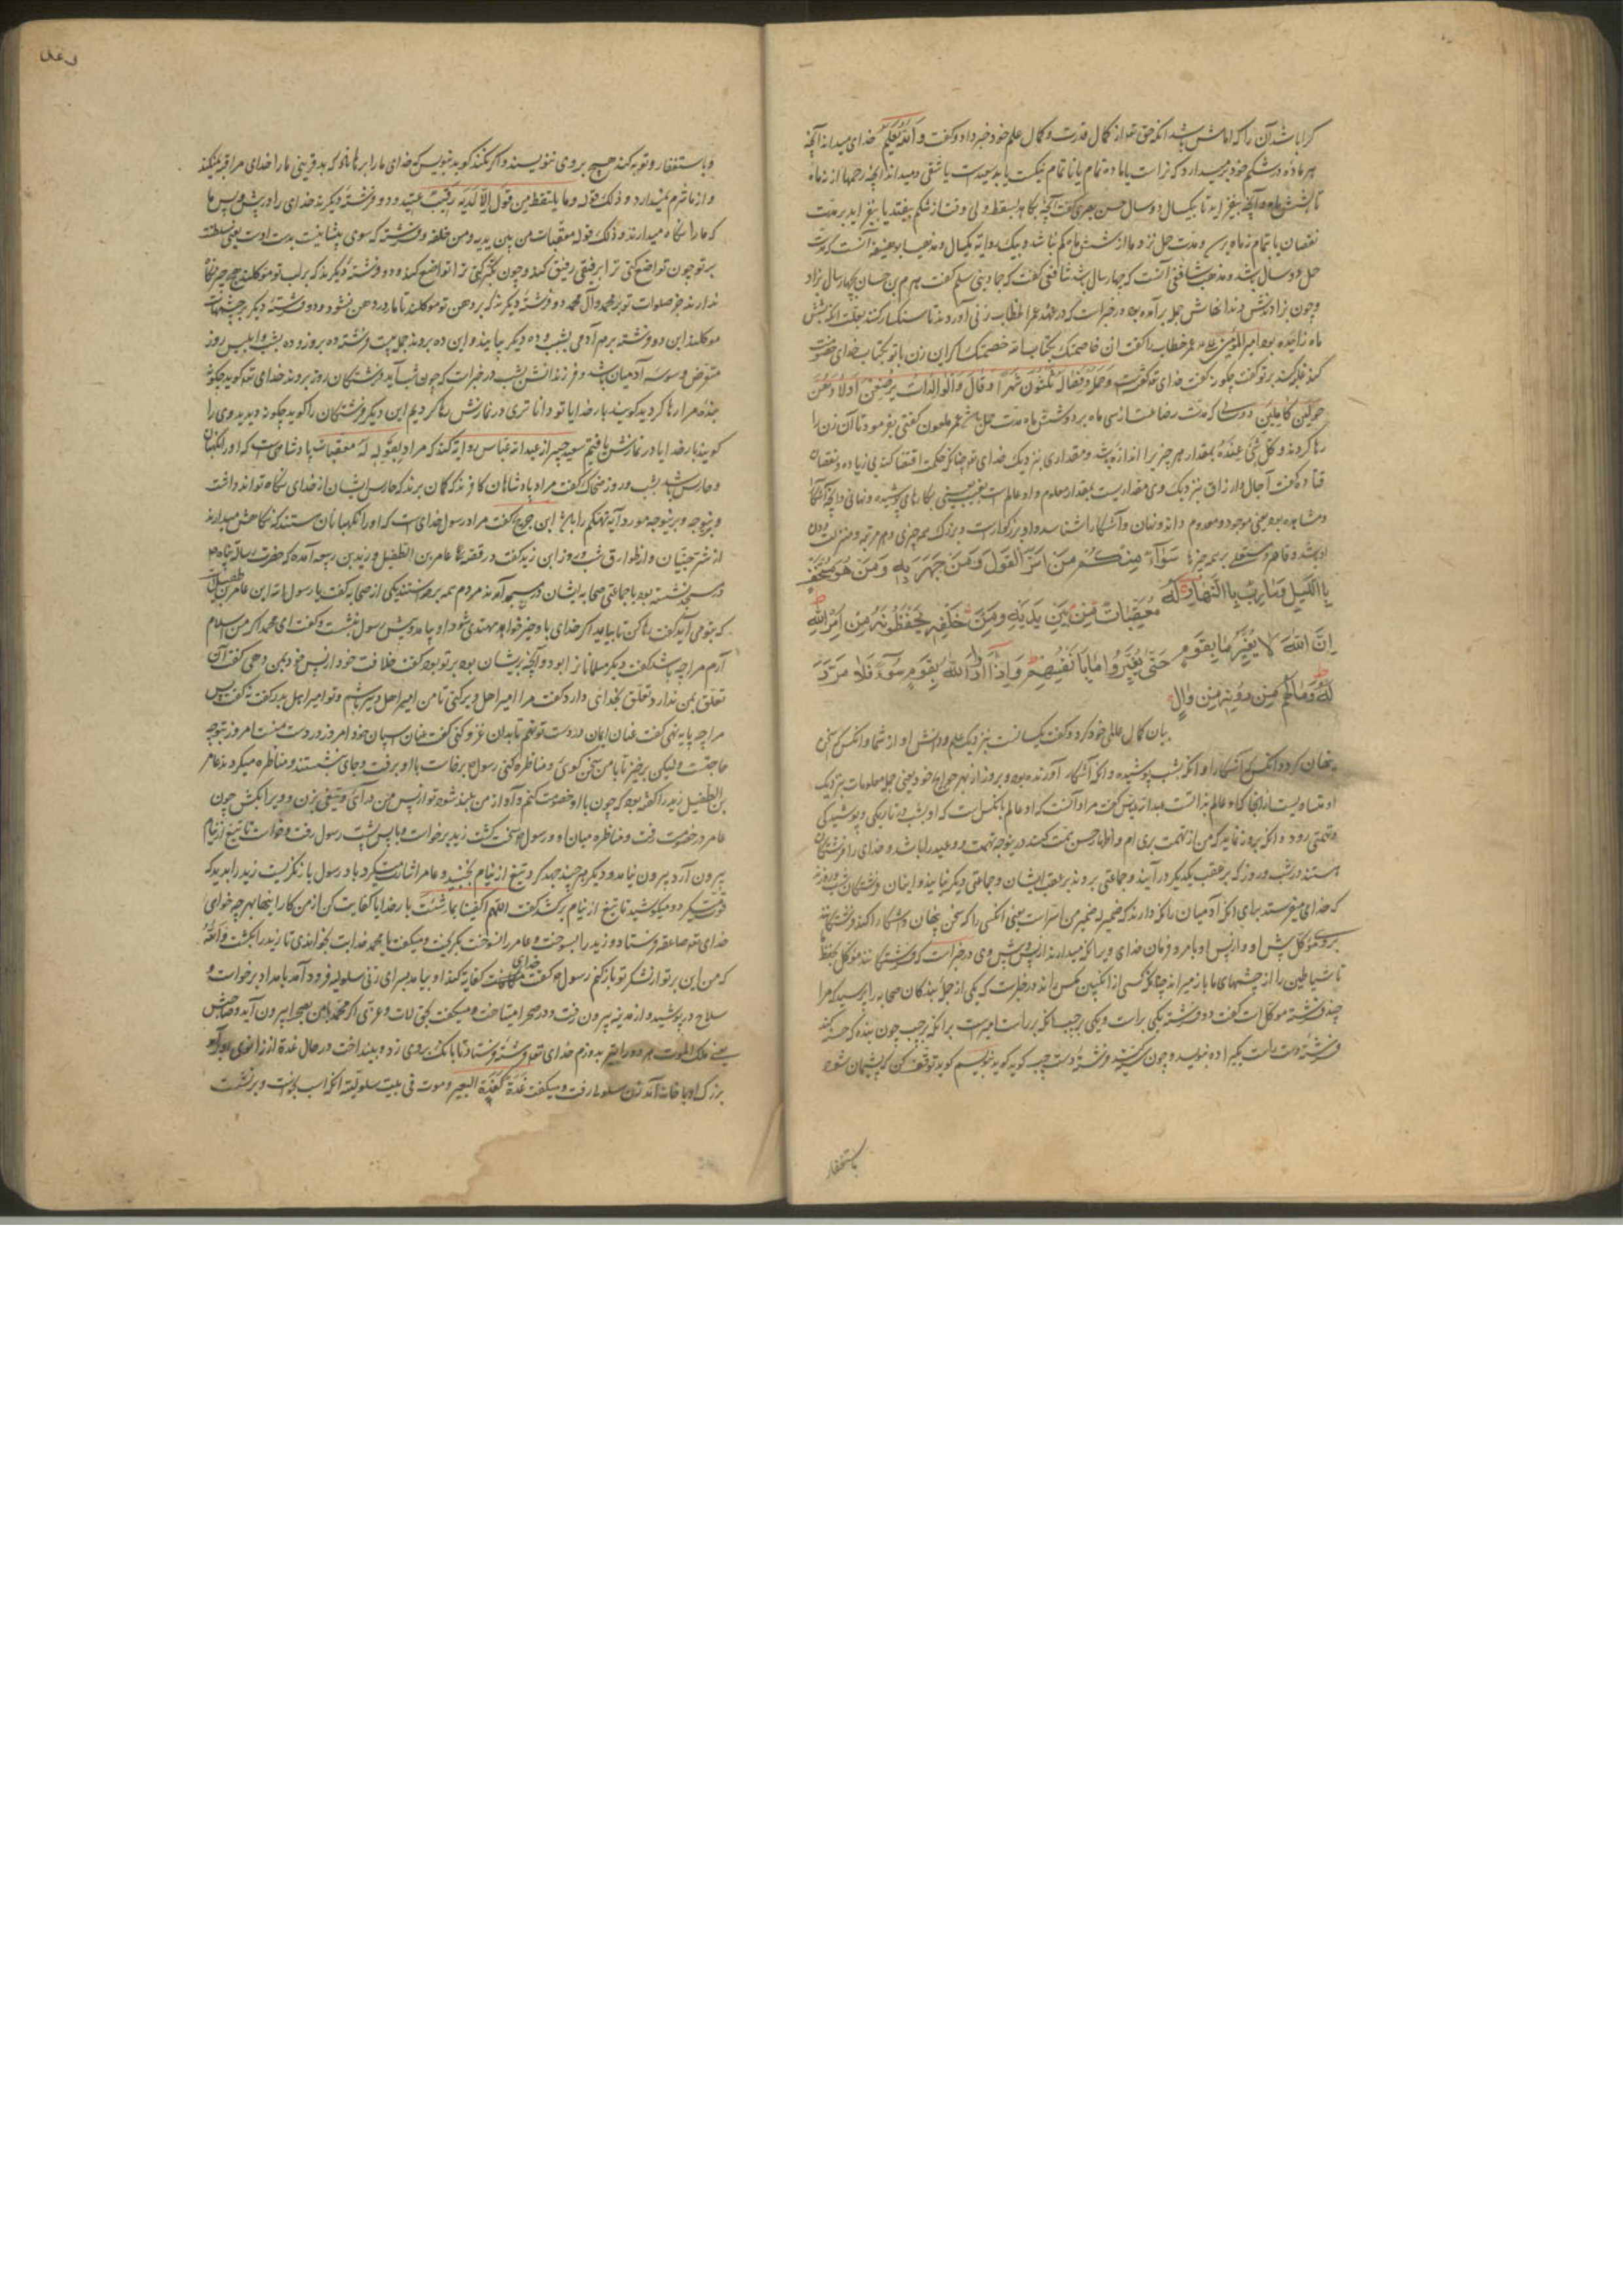 کرا باشد آن را که امامش باشد آنکه حق تعالی از کمال قدرت و کمال علم خود خبر داد و گفت و الله یعلم خدای میداند آنچه
هر ماده در شکم خود برمیدارد که نر است یا ماده تمام یا ناتمام نیکست یا بد سعید است یا شقی و میداند آنچه رحمها از نه ماه
تا شش ماه و آنچه بیفزاید تا بیکسال و دو سال حسن بصری گفت آنچه بکاهد بسقط ولی وقت از شکم بیفتد یا بیفزاید بر مدت
نقصان یا بتمام نه ماه برسد و مدت حمل نزد ما از شش ماه کم نباشد و بیک روایه یکسال و مذهب ابو حنیفه آنست که مدت
حمل دو سال باشد و مذهب شافعی آنست که چهار سال باشد شافعی گفت که حماد بن سلم گفت هرم بن حسان بچهار سال بزاد
و چون بزاد دندانهاش جمله برآمده بود در خبر است که در عهد عمر الخطاب زنی آوردند تا سنگسار کنند بعلت آنکه بشش
ماه زائیده بود امیر المؤمنین عمر خطاب را گفت ان خاصمتک بکتاب الله خصمتک اگر این زن با تو بکتاب خدای خصومت
کند غلبه کند بر تو گفت چگونه گفت خدای تعالی گفت و حمله و فصاله ثلثون شهرا و قال و الوالدات یرضعن اولادهن
حولین کاملین دو سال که مدت رضاعت از سی ماه برود شش ماه مدت حمل باشد عمر ملعون گفتی بفرمود تا آن زن را
رها کردند و کل شیء عنده بمقدار هر چیز را اندازه باشد و مقداری نزدیک خدای تعالی چنانکه حکمت اقتضا کند بی زیاده و نقصان
قتاده گفت آجال و ارزاق نزدیک وی مقداریست بمقدار معلوم و او عالم است بغیب یعنی بکارهای پوشیده و نهانی و آنچه آشکارا
و مشاهده بود یعنی موجود و معدوم داند و نهان و آشکارا شناسد و او بزرگوار است و بزرگ همه چیزی و هم مرتبه و منزلت دون
او باشد و قاهر و مستعلی بر همه چیز سَوَآءٌ مِنكُم مَن اَسَرَّ القَولَ وَمَن جَهَرَ بِهِ وَمَن هُوَ مُستَخفٍ
بِاللَّيلِ وَسَارِبٌ بِالنَّهَارِ لَهُ مُعَقِّبَاتٌ مِن بَينِ يَدَيهِ وَمِن خَلفِهِ يَحفَظُونَهُ مِن اَمرِ اللهِ
اِنَّ اللهَ لَا يُغَيِّرُ مَا بِقَومٍ حَتَّى يُغَيِّرُوا مَا بِاَنفُسِهِم وَاِذَآ اَرَادَ اللهُ بِقَومٍ سُوءً فَلَا مَرَدَّ
لَهُ وَمَا لَهُم مِن دُونِهِ مِن وَالٍ
بیان کمال عالمی خود کرد و گفت یکسانست نزدیک علم و دانش او از شما و آنکس که سخن
پنهان کرد و آنکس که آشکارا و آنکه بشب پوشیده و آنکه آشکار آورنده بود و بروز از بهر حوایج خود یعنی جمله معلومات نزدیک
او متساویست از آنجا که او عالم بذاتست عبدالله عباس گفت مراد آنست که او عالم بآنکس است که او بشب در تاریکی و پوشیدگی
و تهمتی رود و آنکه بروز نماید که من از تهمت بری ام درینوجه تهمت و وعید را باشد و خدای را فرشتگان
هستند در شب و روز که بر عقب یکدیگر درآیند و جماعتی بروند بر عقب ایشان و جماعتی دیگر بیایند و اینان فرشتگان شب و روزند
که خدای میفرستد برای آنکه آدمیان را نگه دارند که ضمیر له ضمیر من اسرّ است یعنی آنکسی را که سخن پنهان و آشکارا کند فرشتگانند
بروی موکل پیش او و از پس او بامر و فرمان خدای ویرا نگه میدارند از پس و پیش وی در خبر است که فرشتگانند موکل بحفظ
تا شیاطین را از چشمهای ما باز میرانند چنانکه کسی از انگبین مگس راند در خبر است که یکی از جمله بندگان صحابه را پرسید که مرا
چند فرشته موکل است گفت دو فرشته یکی بر راست و یکی بر چپ آنکه بر راست امیر است بر آنکه بر چپ چون بنده که حسنه کند
فرشته دست راست یکی را ده بنویسد و چون سیئه کند فرشته دست چپ گوید که بنویسم گوید توقف کن که پشیمان شود
باستغفار
و باستغفار و توبه کند هیچ بر وی ننویسند و اگر نکند گوید بنویس که خدای ما را برهاناد که بد قرینی ما را خدای مراقبه نمیکند
و از ما شرم نمیدارد و ذلک قوله و ما یلفظ من قول الا لدیه رقیب عتید و دو فرشته دیگرند خدای را در پیش و پس ما
که ما را نگاه میدارند و ذلک قوله معقبات من بین یدیه و من خلفه و فرشته که موی پیشانیت بدست اوست یعنی سلطنت
بر تو چون تواضع کنی ترا برفیقی رفیق کند و چون تکبر کنی ترا تواضع کند و دو فرشته دیگرند که بر لب تو موکلند هیچ چیز نگاه
ندارند جز صلوات تو بر محمد و آل محمد دو فرشته دیگرند که بر دهن تو موکلند تا مار در دهن نشود و دو فرشته دیگر بر چشمهات
موکلند این دو فرشته بر هر آدمی بشب و ده دیگر بیایند و این ده بروند جمله بیست فرشته ده بروز و ده بشب و ابلیس روز
متعرض وسوسه آدمیان باشد و فرزندانش بشب در خبر است که چون شب آید فرشتگان روز بروند خدای تعالی گوید چگونه
بنده مرا رها کردید گویند بار خدایا تو داناتری در نمازش رها کردیم این دیگر فرشتگان را گوید چگونه دیدید وی را
گویند بار خدایا در نمازش یافتیم سعید جبیر از عبدالله عباس روایه کند که مراد بقوله له معقبات پادشاهی است که او را نگهبان
و حارس باشد بشب و روز ضحاک گفت مراد پادشاهان کافرند که گمان برند که حارس ایشان از خدای نگاه تواند داشت
و برینوجه مورد آیه تهکم باشد ابن جریج گفت مراد رسول خدای است که او را نگهبانان هستند که نگاهش میدارند
از شر جنیان و از طوارق شب و روز ابن زید گفت در قصه عامر بن الطفیل و زید بن ربیعه آمده که حضرت رسالت پناه
در مسجد نشسته بود با جماعتی صحابه ایشان در مسجد آمدند مردم همه برخاستند یکی از صحابه گفت یا رسول الله این عامر بن طفیل است
که بتو می آید گفت رها کن تا بیاید اگر خدای باو خیر خواهد مهتدی شود او بیامد و پیش رسول بنشست و گفت ای محمد اگر من اسلام
آرم مرا چه باشد گفت دیگر مسلمانان را بود و آنچه بریشان بود بر تو بود گفت خلافت خود از پس خود بمن دهی گفت آن
تعلق بمن ندارد تعلق بخدای دارد گفت مرا امیر اهل وبر کنی تا من امیر اهل وبر باشم و تو امیر اهل مدر گفت نه گفت پس
مرا چه پایه نهی گفت عنان اسبان در دست تو نهم تا بدان غزو کنی گفت عنان اسپان خود امروز در دست منست امروز بتو چه
حاجتست ولیکن برخیز تا با من سخن گویی و مناظره کنی رسول برخاست با او برفت و جای بنشستند و مناظره میکردند عامر
بن الطفیل زید را گفته بود که چون با او خصومت کنم و آواز من بلند شود تو از پس من درآی و تیغی بزن و ویرا بکش چون
عامر در خصومت رفت و مناظره میان او و رسول سخت گشت زید برخاست و با پس پشت رسول رفت و خواست تا تیغ از نیام
بیرون آرد بیرون نیامد و دیگر هر چند جهد کرد تیغ از نیام نجنبید و عامر اشارت میکرد باو رسول باز نگریست زید را بدید که
قوت میکرد و میکوشید تا تیغ از نیام برکشد گفت اللهم اکفنا بما شئت بار خدایا کفایت کن از من کار اینها بهر چه خواهی
خدای تعالی صاعقه فرستاد و زید را بسوخت و عامر را نسوخت بگریخت و میگفت یا محمد خدایت بخواندی تا زید را بکشت والله
که من این بر تو از لشکر تو باز کنم رسول گفت خدای کفایه کند او بیامد بسرای زنی سلولیه فرود آمد بامداد برخاست و
سلاح در پوشید و از مدینه بیرون رفت و در صحرا میتاخت و میگفت بحق لات و عزی اگر محمد با من بصحرا بیرون آید و صاحبش
یعنی ملک الموت هر دو را بنیزه بدوزم خدای تعالی فرشته فرستاد تا بانگ بروی زد و بینداخت در حال غدة از زانوی او برآمد
بزرگ او با خانه آمد زن سلولیه رفت و میگفت غدة کغدة البعیر و موت فی بیت سلولیة آنکه اسب بخواست و بر نشست